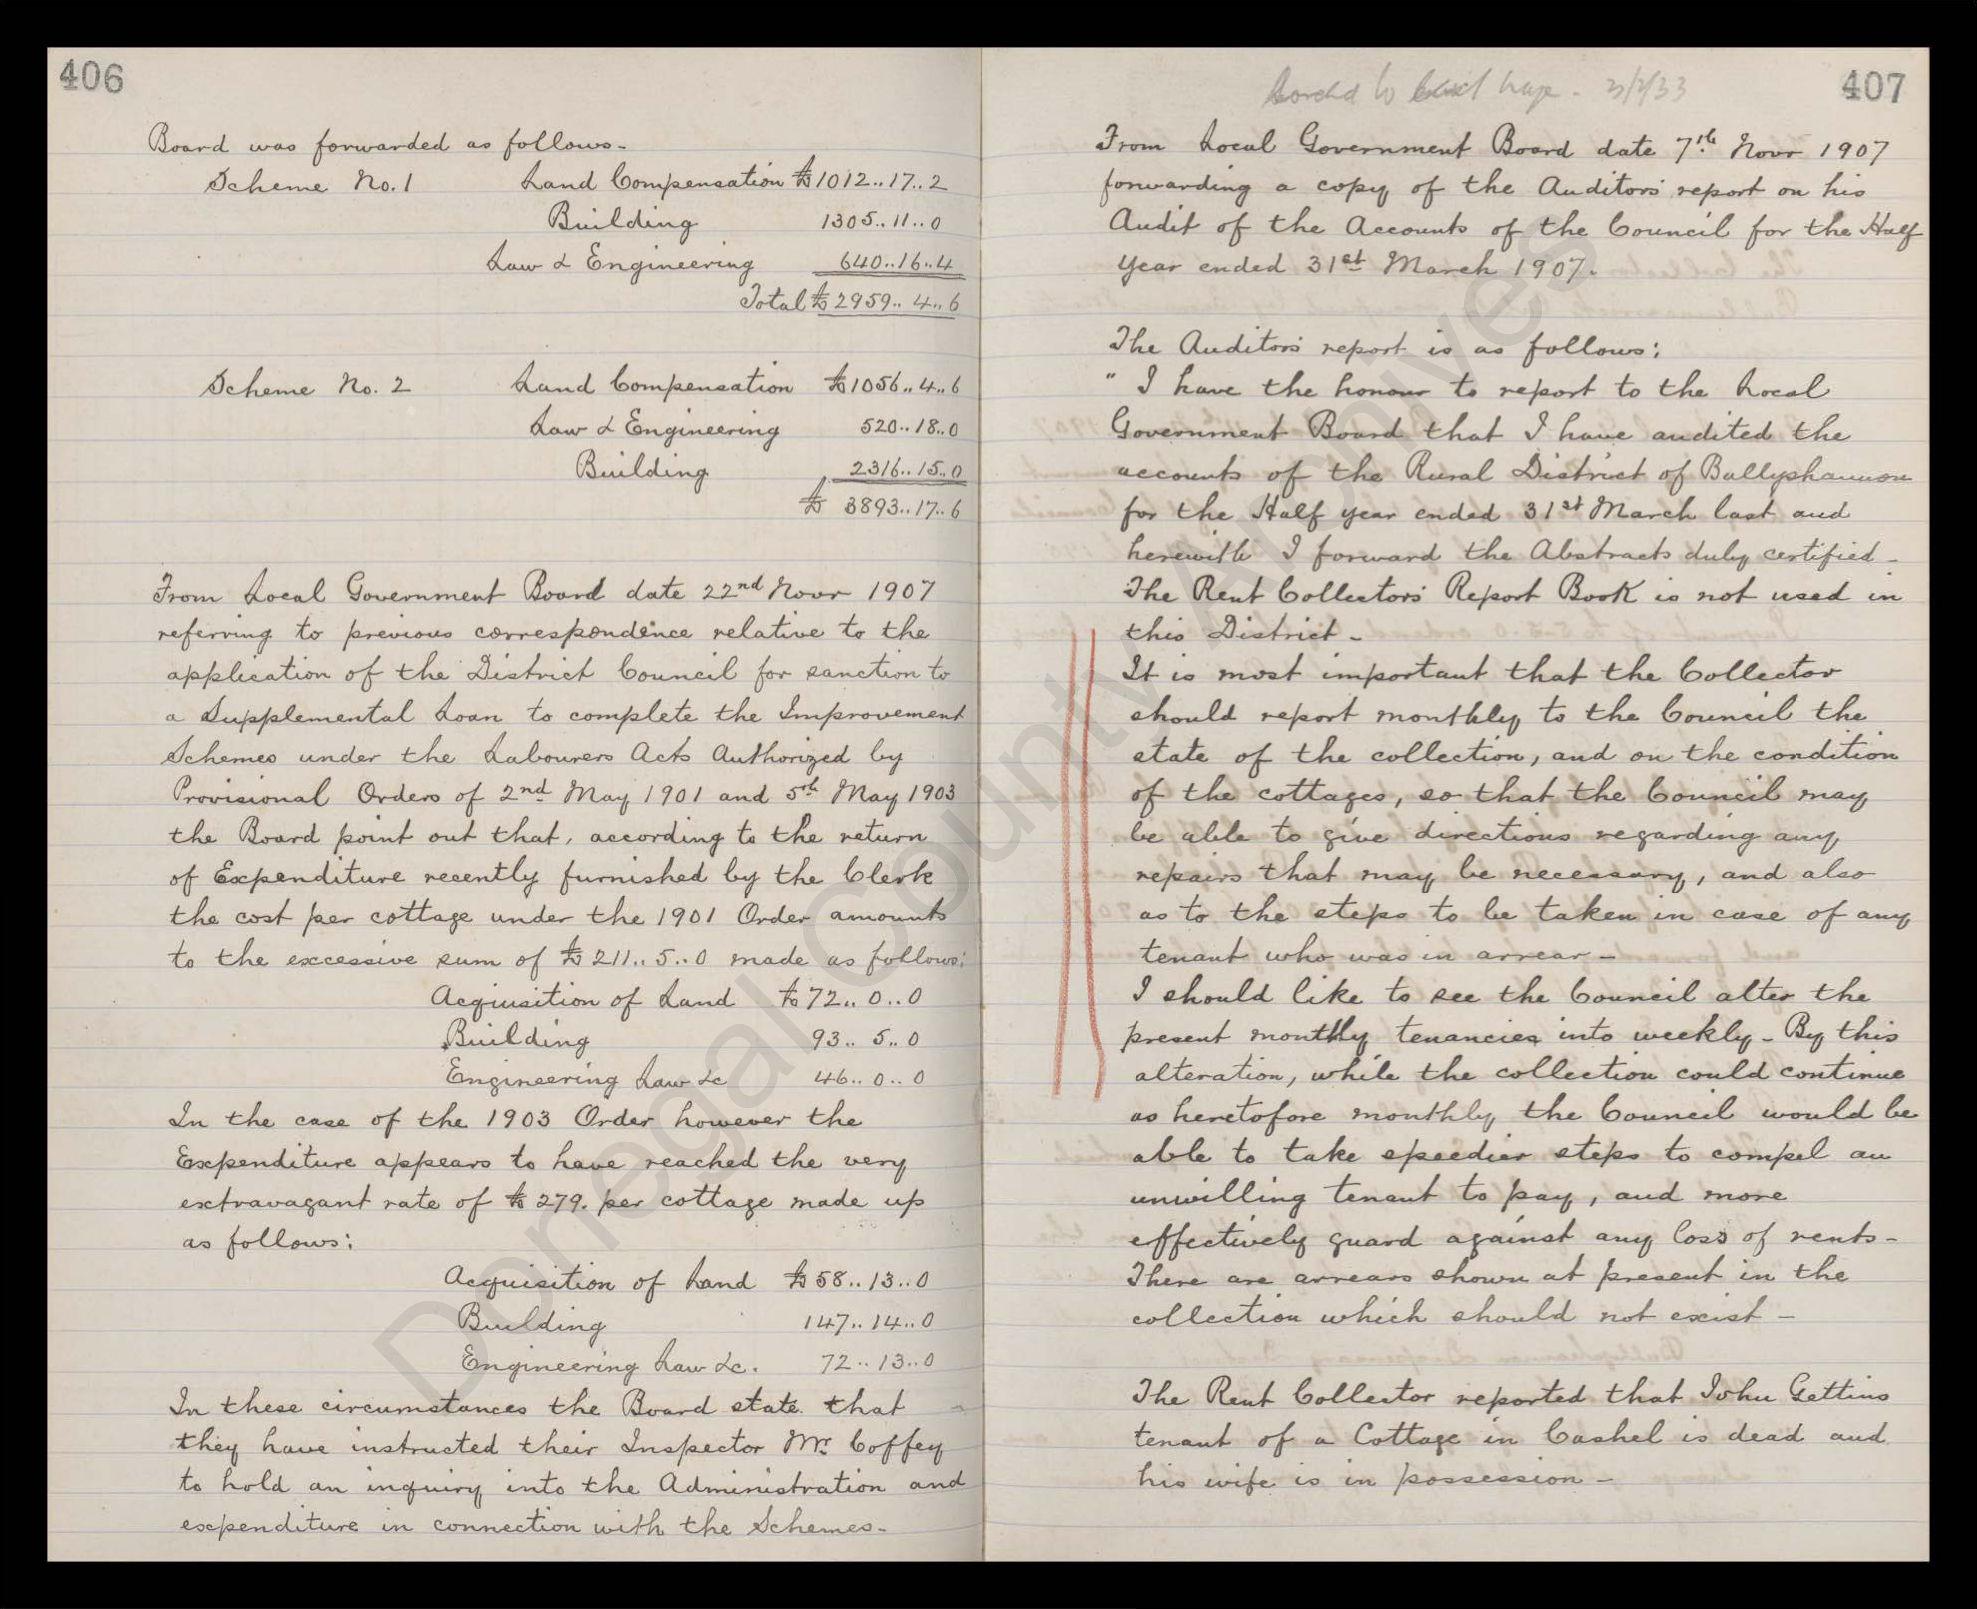 406
Board was forwarded as follows-
Scheme No. 1 Land Compensation £1012..17..2
Building 1305..11..0
Law & Engineering 640..16..4
Total £2959..4..6
Scheme No. 2 Land Compensation £1056..4..6
Law & Engineering 520..18..0
Building 2316..15..0
£ 3893..17..6
From Local Government Board date 22nd Novr 1907
referring to previous correspondence relative to the
application of the District Council for sanction to
a Supplemental Loan to complete the Improvement
Schemes under the Labourers Acts Authorized by
Provisional Orders of 2nd May 1901 and 5th May 1903
the Board point out that, according to the return
of Expenditure recently furnished by the Clerk
the cost per cottage under the 1901 Order amounts
to the excessive sum of £211..5..0 made as follows:
Acquisition of Land £72..0..0
Building 93..5..0
Engineering Law &c 46..0..0
In the case of the 1903 Order however the
Expenditure appears to have reached the very
extravagant rate of £279. per cottage made up
as follows:
Acquisition of Land £58..13..0
Building 147..14..0
Engineering Law &c. 72..13..0
In these circumstances the Board state that
they have instructed their Inspector Mr. Coffey
to hold an inquiry into the Administration and
expenditure in connection with the Schemes-
407
From Local Government Board date 7th Novr 1907
forwarding a copy of the Auditors' report on his
Audit of the Accounts of the Council for the Half
Year ended 31st March 1907.
The Auditors' report is as follows:
" I have the honour to report to the Local
Government Board that I have audited the
accounts of the Rural District of Ballyshannon
for the Half year ended 31st March last and
herewith I forward the Abstracts duly certified-
The Rent Collectors' Report Book is not used in
this District-
It is most important that the Collector
should report monthly to the Council the
state of the collection, and on the condition
of the cottages, so that the Council may
be able to give directions regarding any
repairs that may be necessary, and also
as to the steps to be taken in case of any
tenant who was in arrear-
I should like to see the Council alter the
present monthly tenancies into weekly- By this
alteration, while the collection could continue
as heretofore monthly the Council would be
able to take speedier steps to compel an
unwilling tenant to pay, and more
effectively guard against any loss of rents-
There are arrears shown at present in the
collection which should not exist-
The Rent Collector reported that John Gettins
tenant of a Cottage in Cashel is dead and
his wife is in possession-
Donegal County Archives